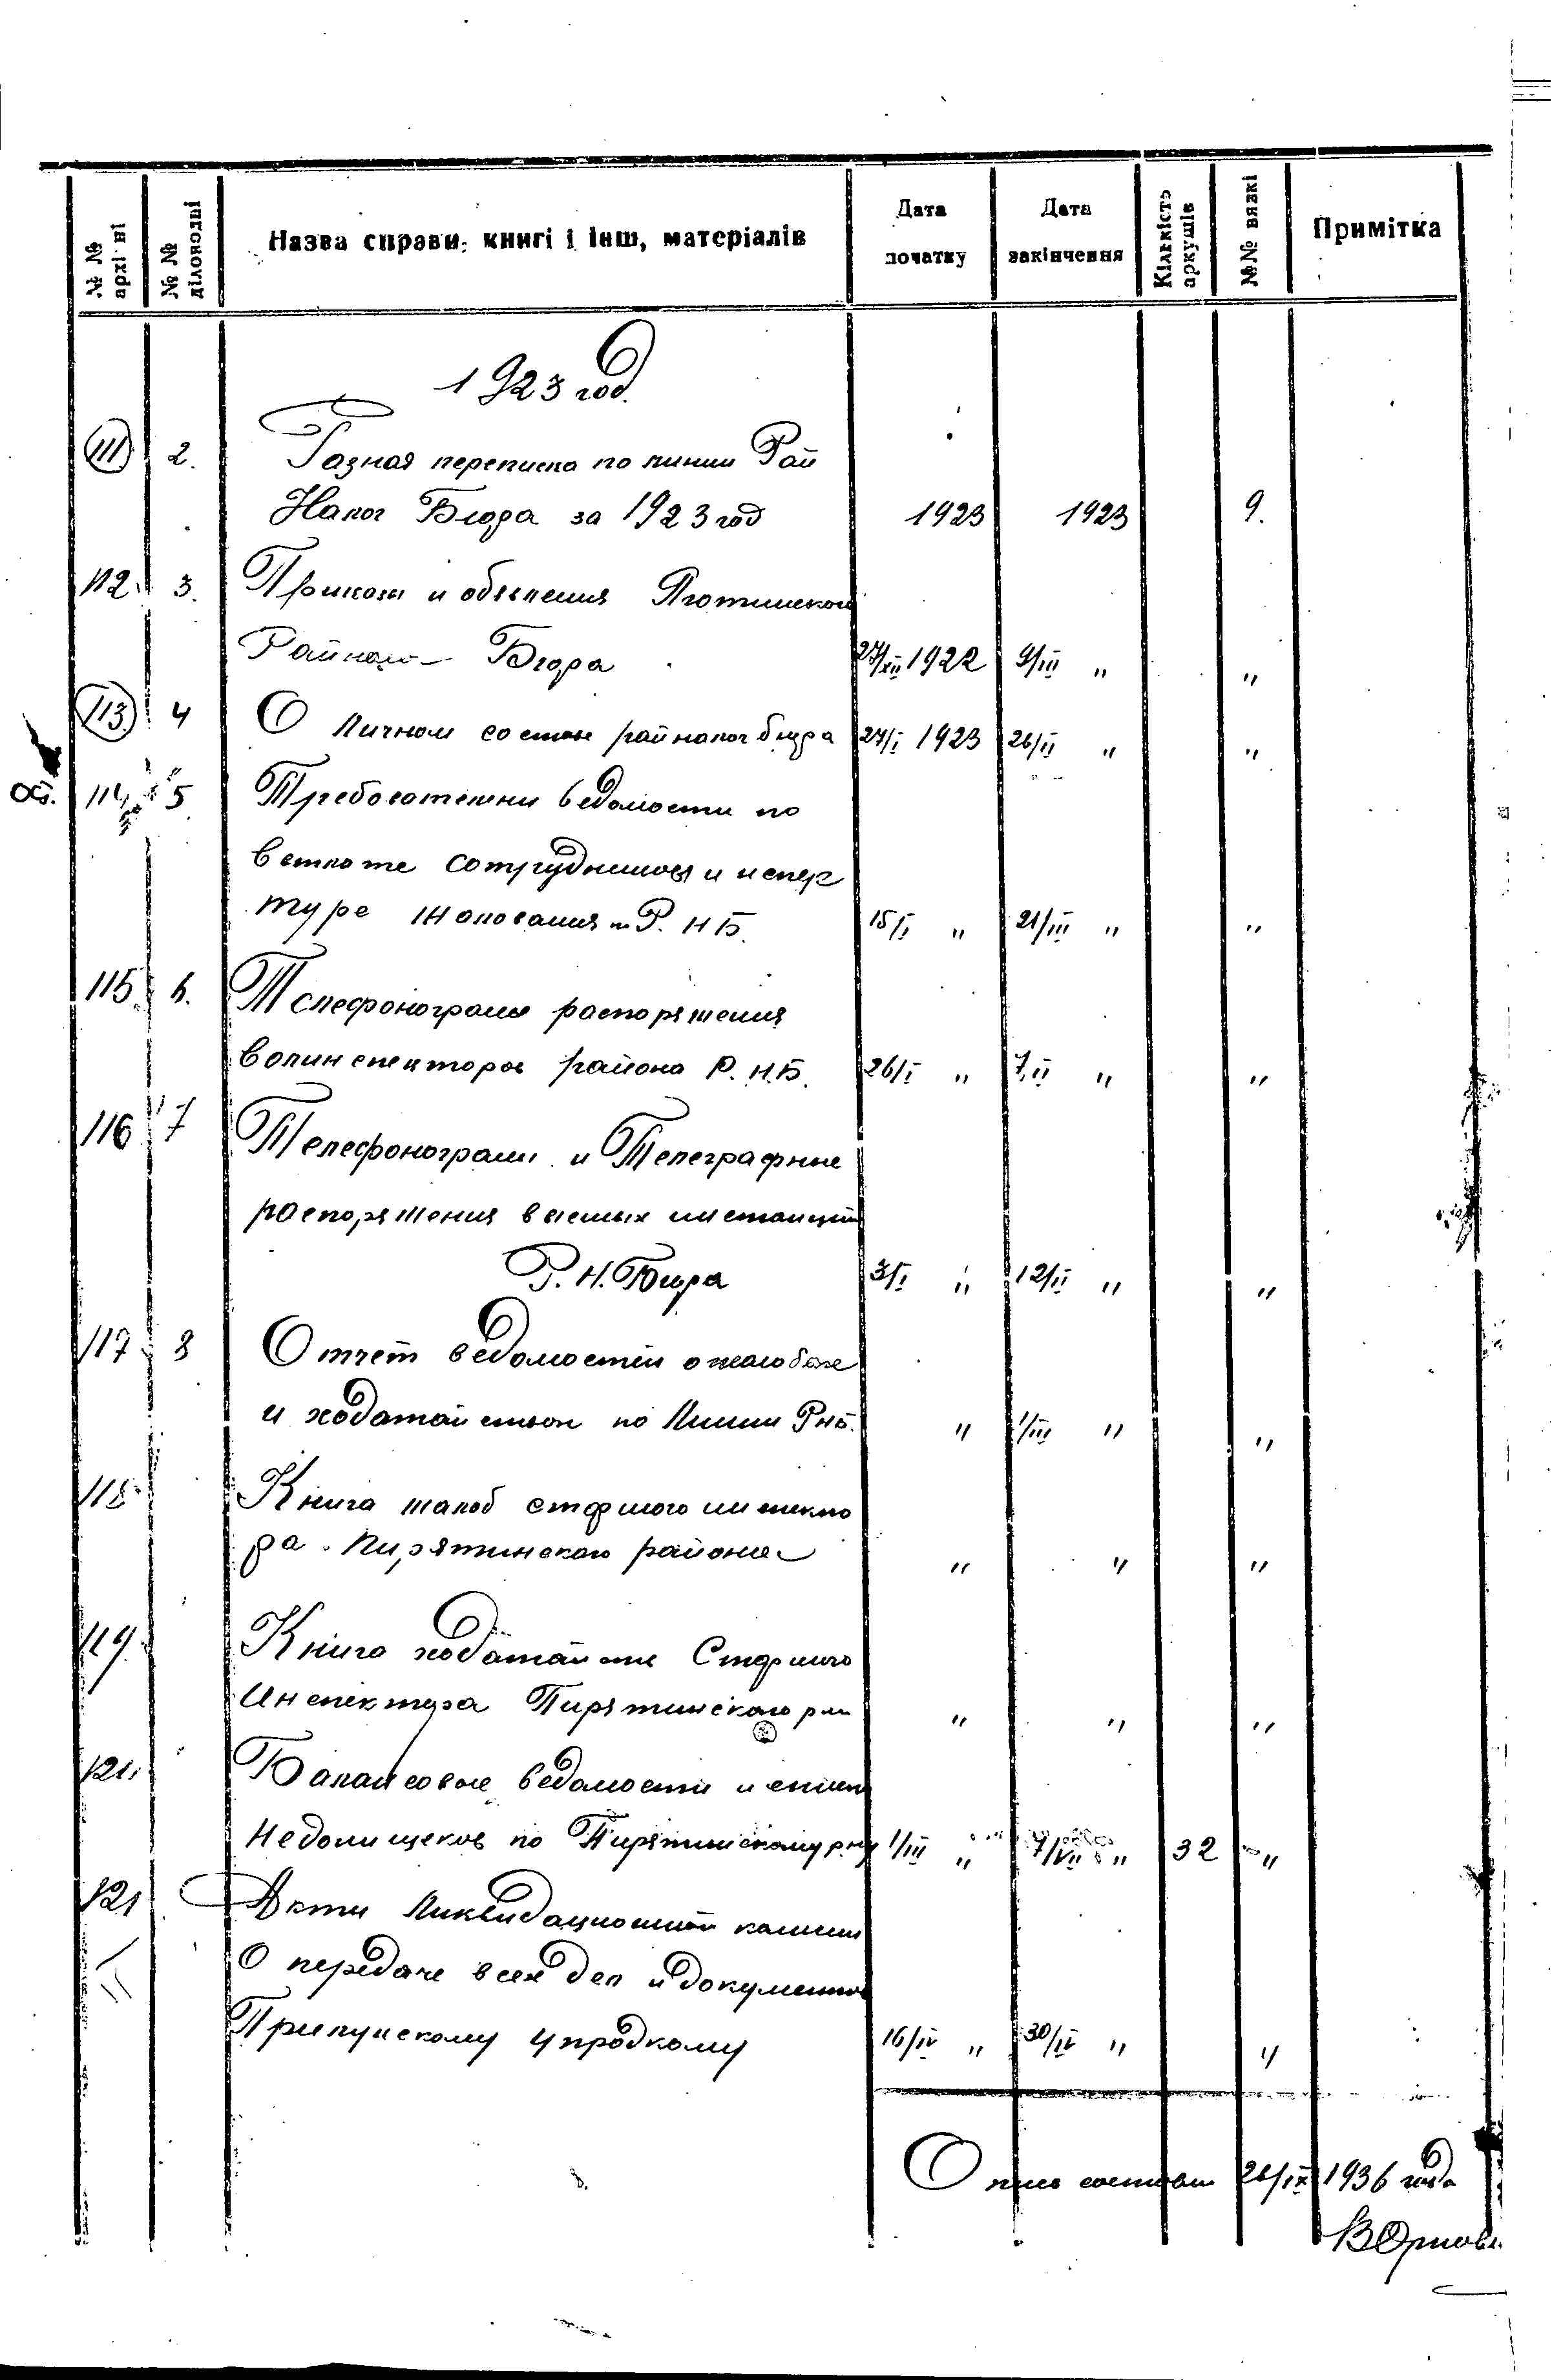 № № архівні
№ № діловодні
Назва справи, книгі і інш, матеріалів
Дата початку
Дата закінчення
Кількість аркушів
№№ вязкі
Примітка
1923 год.
111 2. Разная переписка по линии Рай
Налог Бюра за 1923 год 1923 1923 9.
112 3. Прикази и обявления
Бюра 27/XII 1922 9/III " "
113 4 О личном составе райналог бюра 27/I 1923 26/II " "
114 5 ведомости по
сотрудников и
Р. Н Б. 15/I " 21/III " "
115 6. Телефонограмы распоряжения
района Р. Н.Б. 26/I " 7/II " "
116 7 Телефонограми и Телеграфные
распоряжения высших инстанций
Р. Н. Бюра 3/I " 12/II " "
117 8 Отчет ведомостей о жалобах
и ходатайствах по Линии РНБ. " 1/III " "
118 Книга жалоб
ра Пирятинского района " " "
119. Книга ходатайств Старшого
Инспектора Пирятинского р-на " " "
121. Балансовые ведомости и списки
Недоимщеков по Пирятинскому р-ну 1/III " 7/VII " 32 "
121 Акти Ликвидационной комисии
О передаче всех дел и документов
упродкому 16/IV " 30/IV " "
Опись составил 26/IX 1936 года